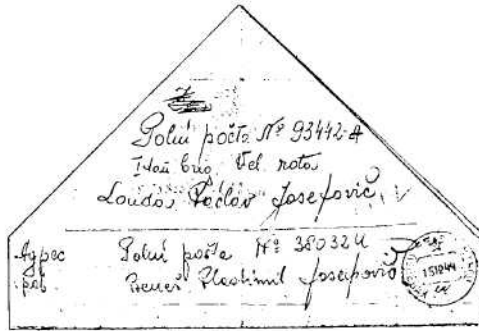 Polní pošta Nº 93442-A
Vel. rota
Louda Václav Josefovič
Адрес Polní pošta Nº 38032 U
Beneš Vlastimil Josefovič
15 10 44